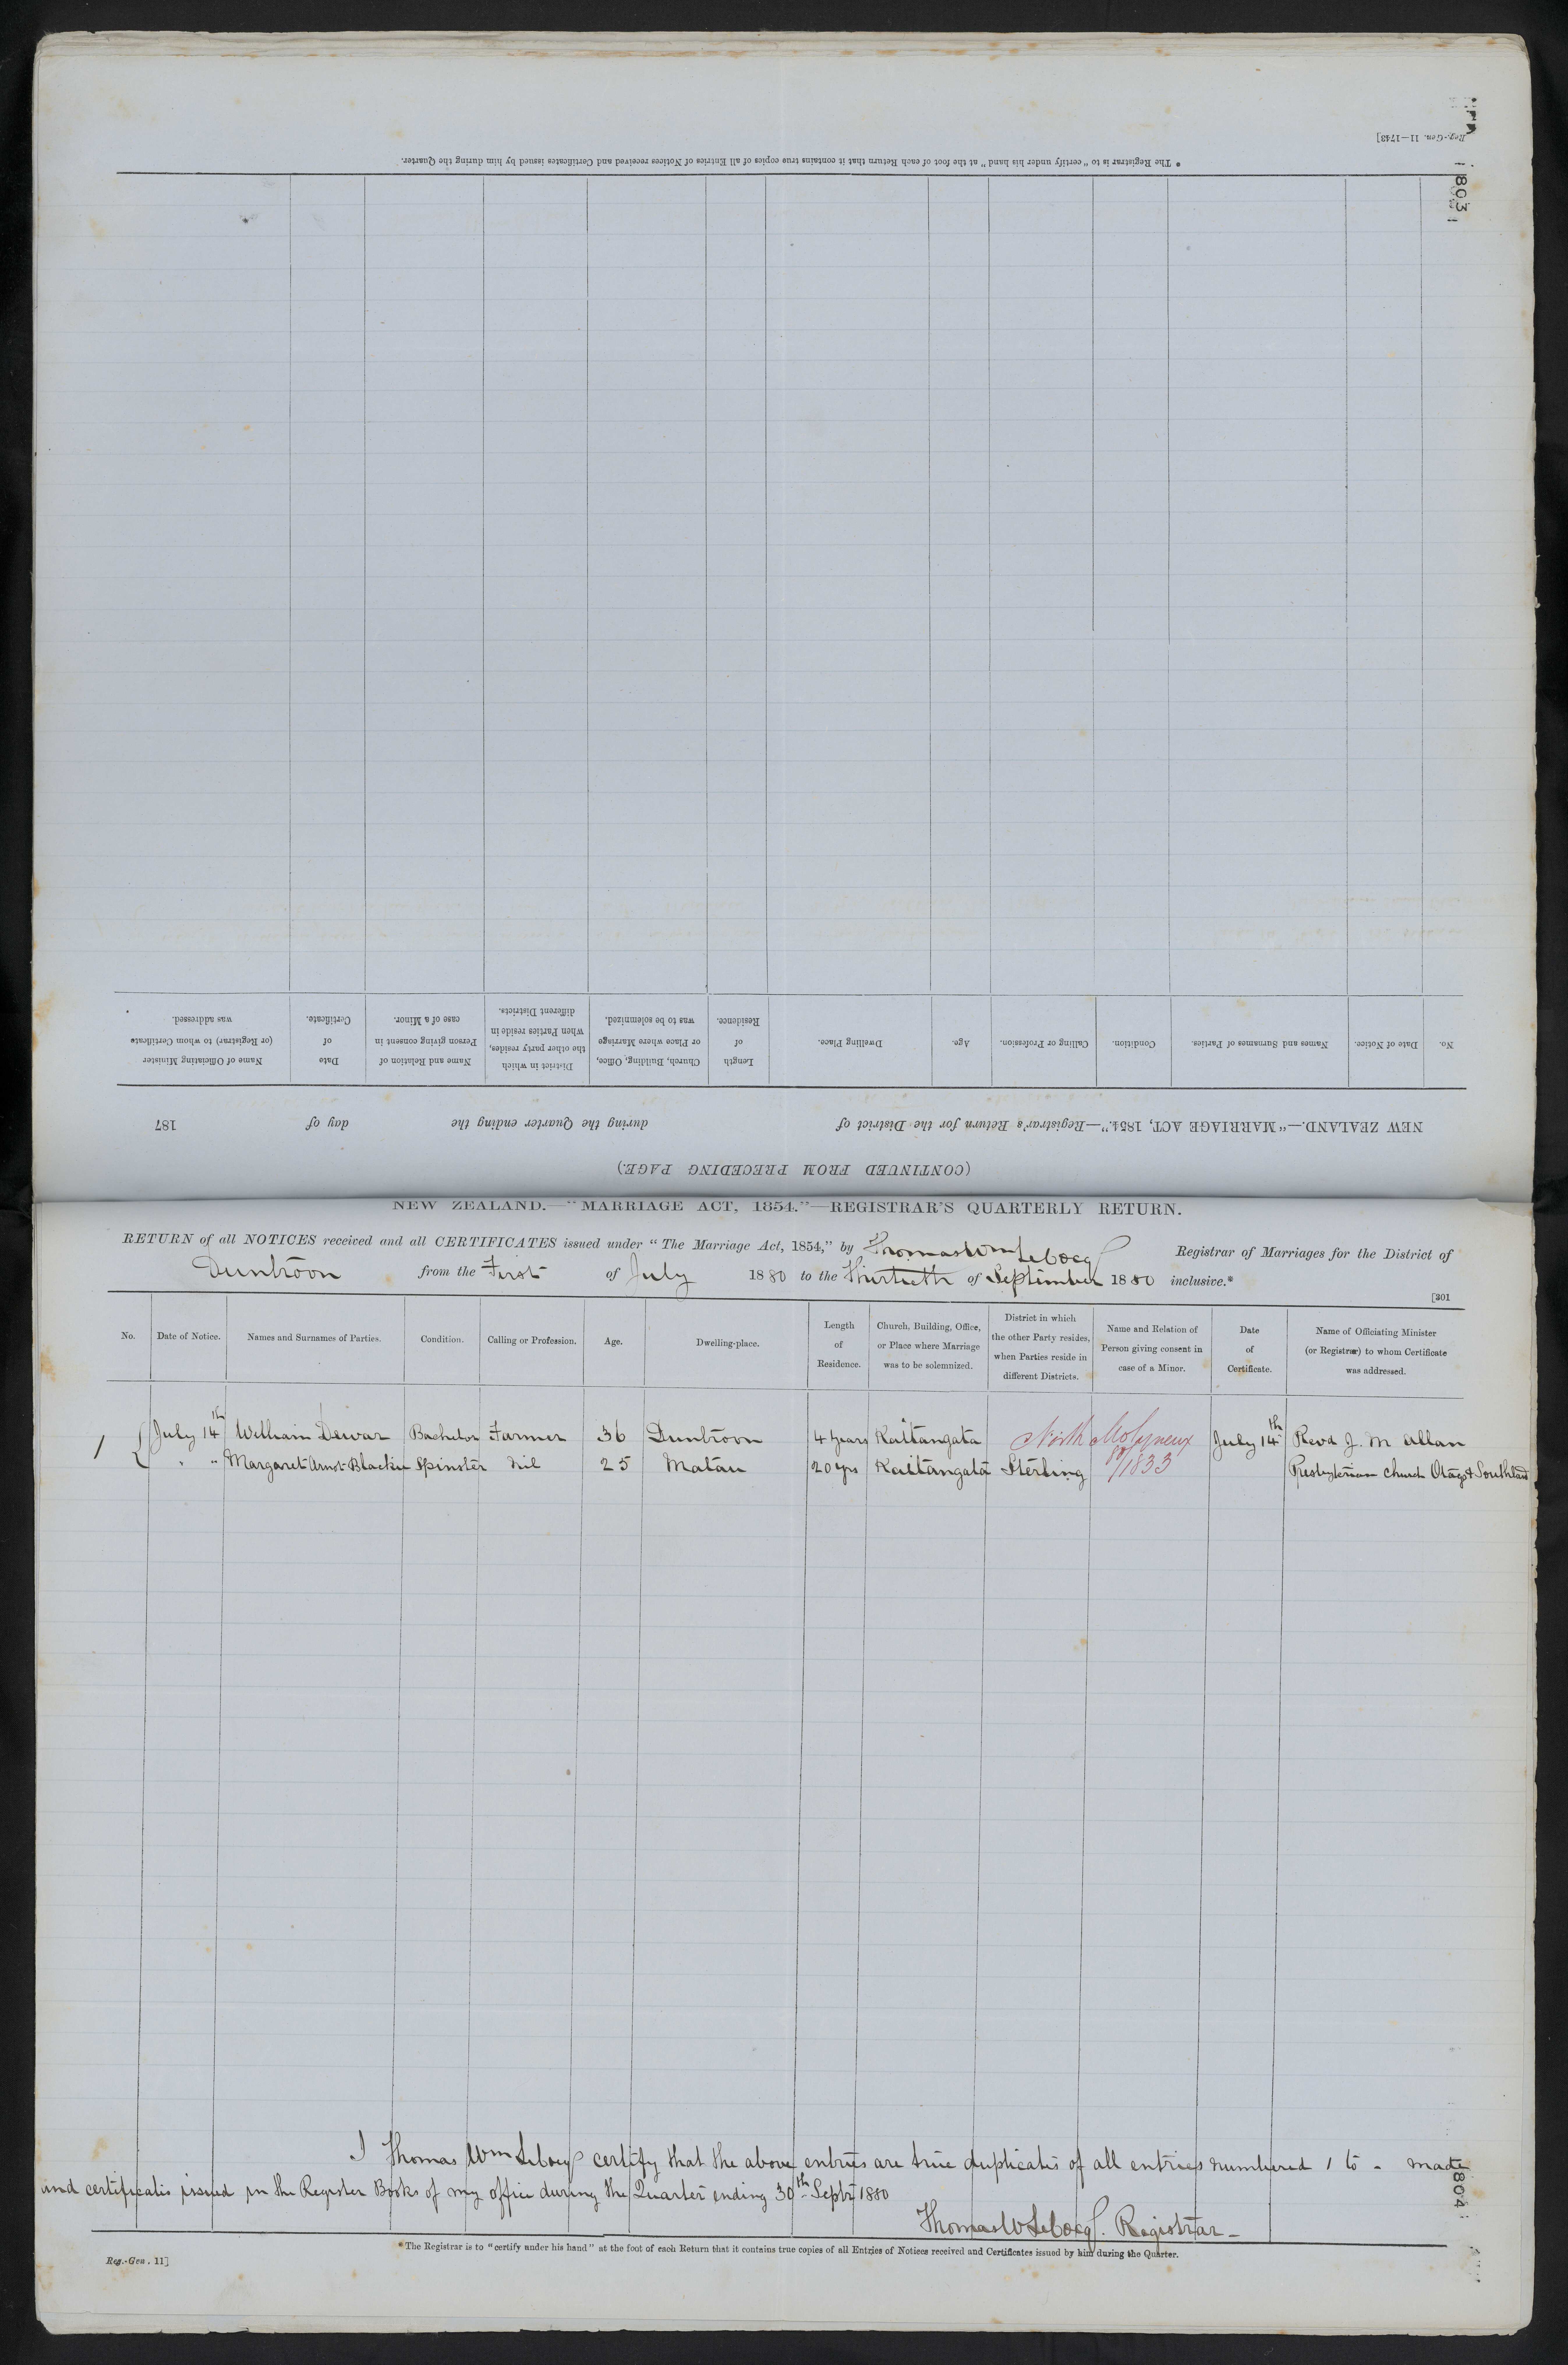 Reg.-Gen. 11—1743]
1803
* The Registrar is to "certify under his hand" at the foot of each Return that it contains true copies of all Entries of Notices received and Certificates issued by him during the Quarter.
(CONTINUED FROM PRECEDING PAGE.)
NEW ZEALAND.—"MARRIAGE ACT, 1854."—Registrar's Return for the District of during the Quarter ending the day of 187
No. Date of Notice. Names and Surnames of Parties. Condition. Calling or Profession. Age. Dwelling Place. Length of Residence. Church, Building, Office, or Place where Marriage was to be solemnized. District in which the other party resides, when Parties reside in different Districts. Name and Relation of Person giving consent in case of a Minor. Date of Certificate. Name of Officiating Minister (or Registrar) to whom Certificate was addressed.
NEW ZEALAND.—"MARRIAGE ACT, 1854."—REGISTRAR'S QUARTERLY RETURN.
RETURN of all NOTICES received and all CERTIFICATES issued under "The Marriage Act, 1854," by Thomas Wm Registrar of Marriages for the District of
Duntroon from the First of July 1880 to the Thirtieth of September 1880 inclusive.*
[301
No. Date of Notice. Names and Surnames of Parties. Condition. Calling or Profession. Age. Dwelling-place. Length of Residence. Church, Building, Office, or Place where Marriage was to be solemnized. District in which the other Party resides, when Parties reside in different Districts. Name and Relation of Person giving consent in case of a Minor. Date of Certificate. Name of Officiating Minister (or Registrar) to whom Certificate was addressed.
1 July 14th William Dewar Bachelor Farmer 36 Duntroon 4 years Kaitangata North Molyneux July 14th Revd J. M Allan
" " Margaret Arnot Blackie Spinster Nil 25 Matau 20 yrs Kaitangata Sterling 80/1833 Presbyterian Church Otago & Southland
I Thomas Wm certify that the above entries are true duplicates of all entries numbered 1 to - made
and certificates issued in the Register Books of my office during the Quarter ending 30th Septr 1880
Thomas W Registrar
1804
* The Registrar is to "certify under his hand" at the foot of each Return that it contains true copies of all Entries of Notices received and Certificates issued by him during the Quarter.
Reg.-Gen. 11]